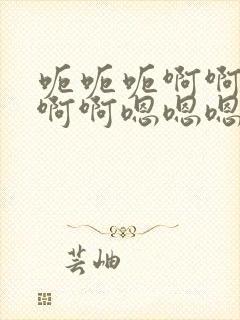 呃呃呃啊啊
啊啊嗯嗯嗯
芸岫